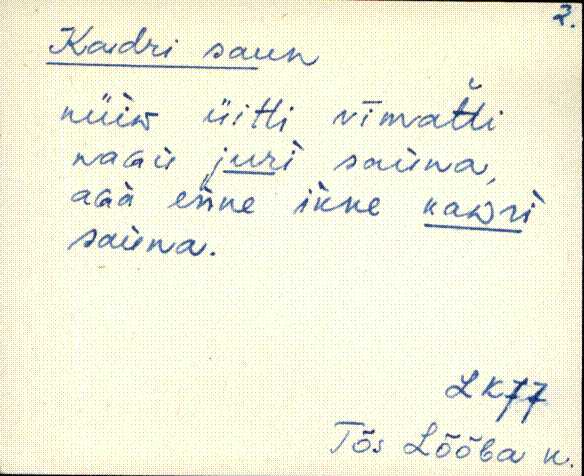 2.
Kadri saun
nüiw üitli vīmatli
naGu juri sauna,
aGa enne ikne kawri
sauna.
LK77
Tõs Lõõba k.